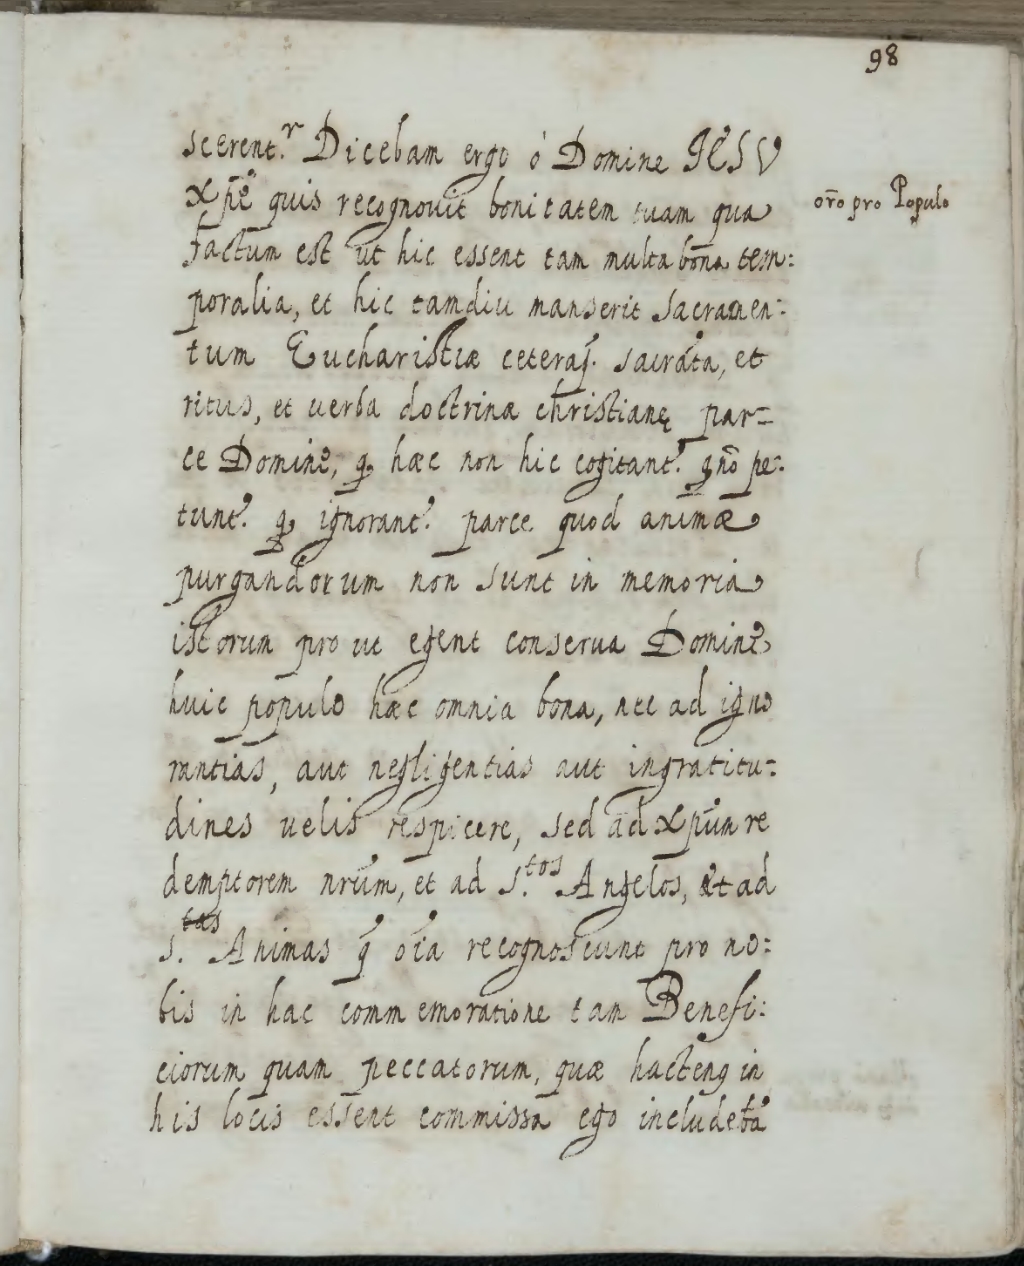 98
scerent.r Dicebam ergo ò Domine IESV
Xp̃e quis recognouit bonitatem tuam qua
factum est ut hic essent tam multa bona tem:
poralia, et hic tamdiu manserit Sacramen:
tum Eucharistiæ ceteraq. sacrãta, et
ritus, et uerba doctrinæ christianę par=
ce Domine, q. hæc non hic cogitant.r qñò pe:
tunt. q. ignorant. parce quod animæ
purgandorum non sunt in memoria
istorum pro ut egent conserua Domine
huic populo hæc omnia bona, nec ad igno
rantias, aut negligentias aut ingratitu:
dines uelis respicere, sed ad Xpũm re
demptorem nrũm, et ad S.tos Angelos, et ad
S.tas Animas q̃ oĩa recognoscunt pro no:
bis in hac commemoratione tam Benefi:
ciorum quam peccatorum, quæ hacteng in
his locis essent commissa ego includebã
or̃o pro Populo